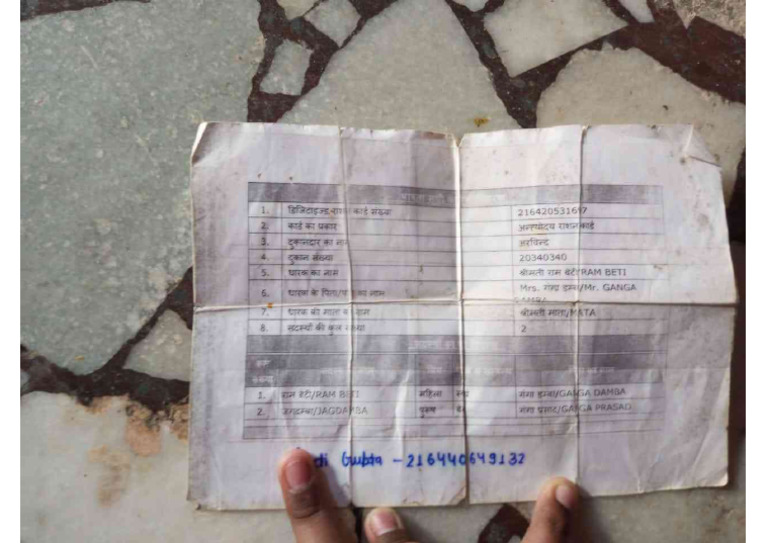 1. डिजिटाइज्ड राशन कार्ड संख्या 216420531697
2. कार्ड का प्रकार अन्त्योदय राशन कार्ड
3. दुकानदार का नाम अरविन्द
4. दुकान संख्या 20340340
5. धारक का नाम श्रीमती राम बेटी/RAM BETI
6. धारक के पिता/पति का नाम Mrs. गंगा डम्बा/Mr. GANGA
7. धारक की माता का नाम श्रीमती माता/MATA
8. सदस्यों की कुल संख्या 2
1. राम बेटी/RAM BETI महिला स्वयं गंगा डम्बा/GANGA DAMBA
2. जगदम्बा/JAGDAMBA पुरुष गंगा प्रसाद/GANGA PRASAD
di Gupta - 216440649132